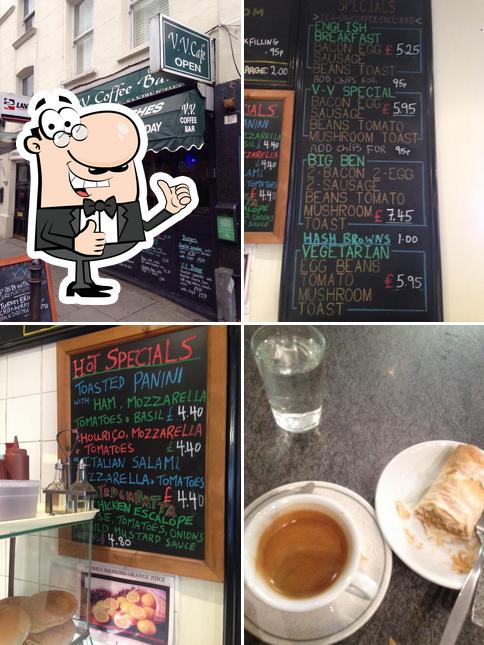 V.V. Cafe
OPEN
V Coffee Bar
V.V.
COFFEE
BAR
DAY
XFILLING
.95p
RAGE 2.00
SPECIALS
>TEA OR COFFEE INCLUDED<
ENGLISH
BREAKFAST
BACON EGG £ 5.25
SAUSAGE
BEANS TOAST
ADD CHIPS FOR 95p
V-V SPECIAL
BACON EGG
SAUSAGE £ 5.95
BEANS TOMATO
MUSHROOM TOAST
ADD CHIPS FOR 95p
BIG BEN
2-BACON 2-EGG
2-SAUSAGE
BEANS TOMATO
MUSHROOM £ 7.45
TOAST
HASH BROWNS 1.00
VEGETARIAN
EGG BEANS
TOMATO £ 5.95
MUSHROOM
TOAST
HOT SPECIALS
TOASTED PANINI
WITH HAM, MOZZARELLA
TOMATOES & BASIL £ 4.40
CHOURIÇO, MOZZARELLA
& TOMATOES £ 4.40
ITALIAN SALAMI,
MOZZARELLA & TOMATOES
£ 4.40
CHICKEN ESCALOPE
TOMATOES, ONIONS
MUSTARD SAUCE
4.80
SQUEEZED ORANGE JUICE